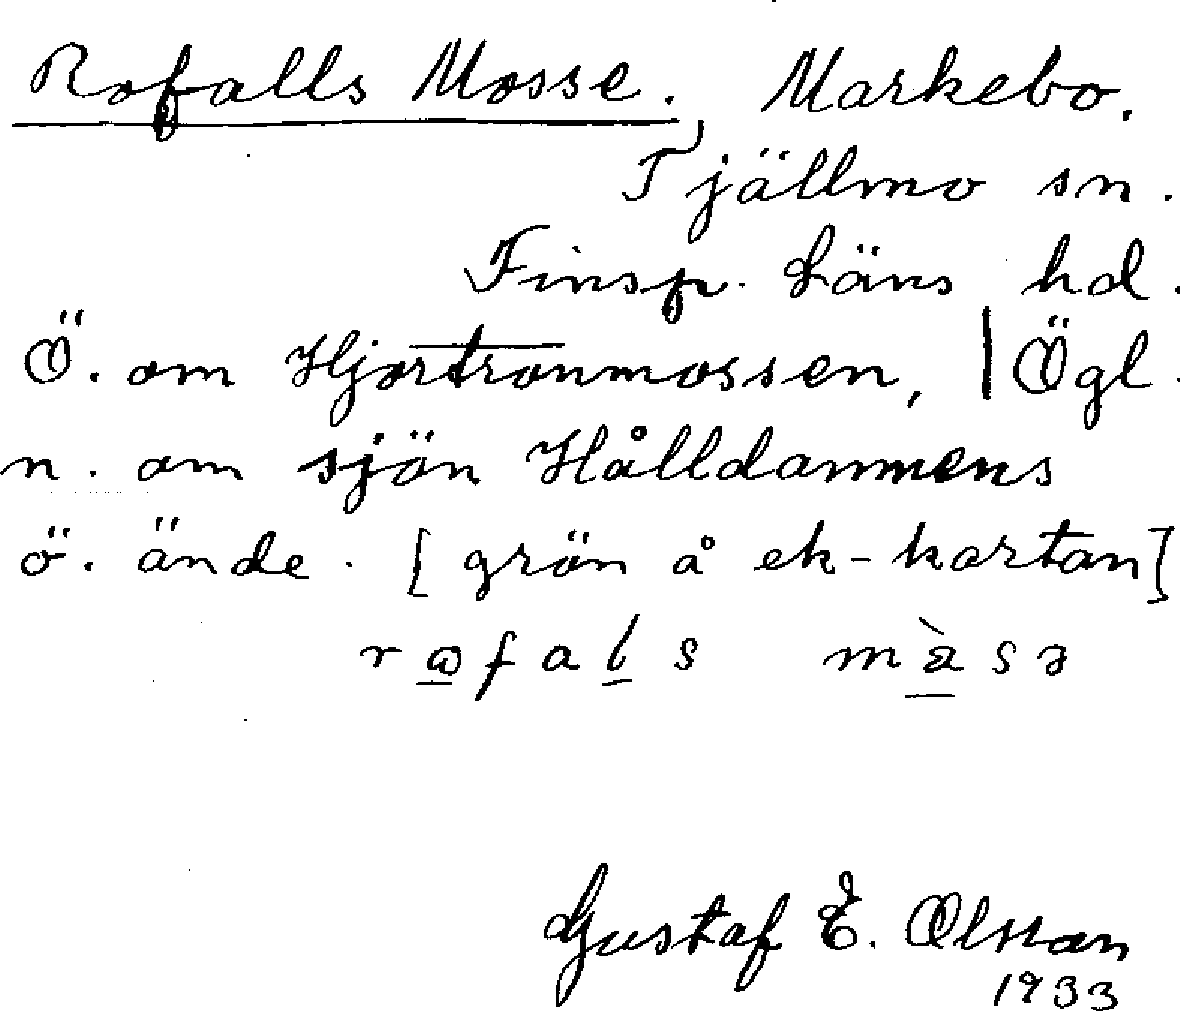 Rofalls Mosse. Markebo.
Tjällmo sn.
Finsp. Läns hd.
Ö. om Hjortronmossen, | Ögl.
n. om sjön Hålldammens
ö. ände. [grön å ek-kartan]
Gustaf E. Olsson
1933